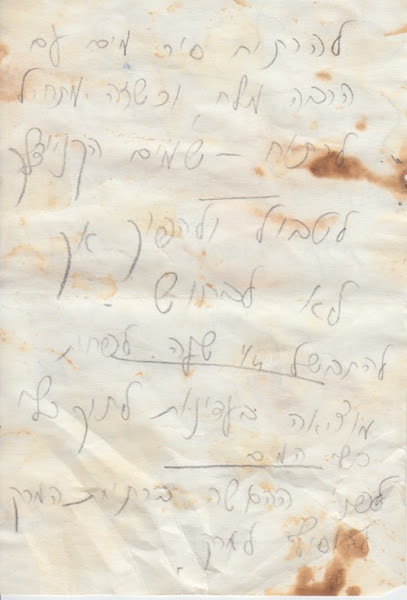 להרתיח סיר מים עם
הרבה מלח וכשזה מתחיל
לרתוח – שמים הקניידלך
לטבול ולהפוך אך
לא לבחוש
להתבשל 3/4 שעה לפחות
מוציאה בעדינות לתוך כלי
עם המים
לפני ההגשה ברתיחת המרק
להוסיף למרק